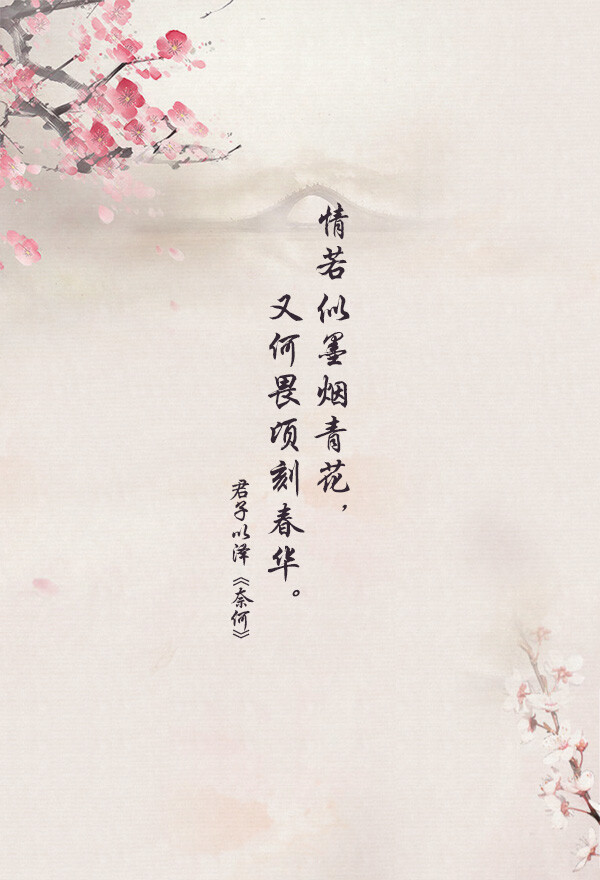 情若似墨烟青花，
又何畏顷刻春华。
君子以泽《奈何》